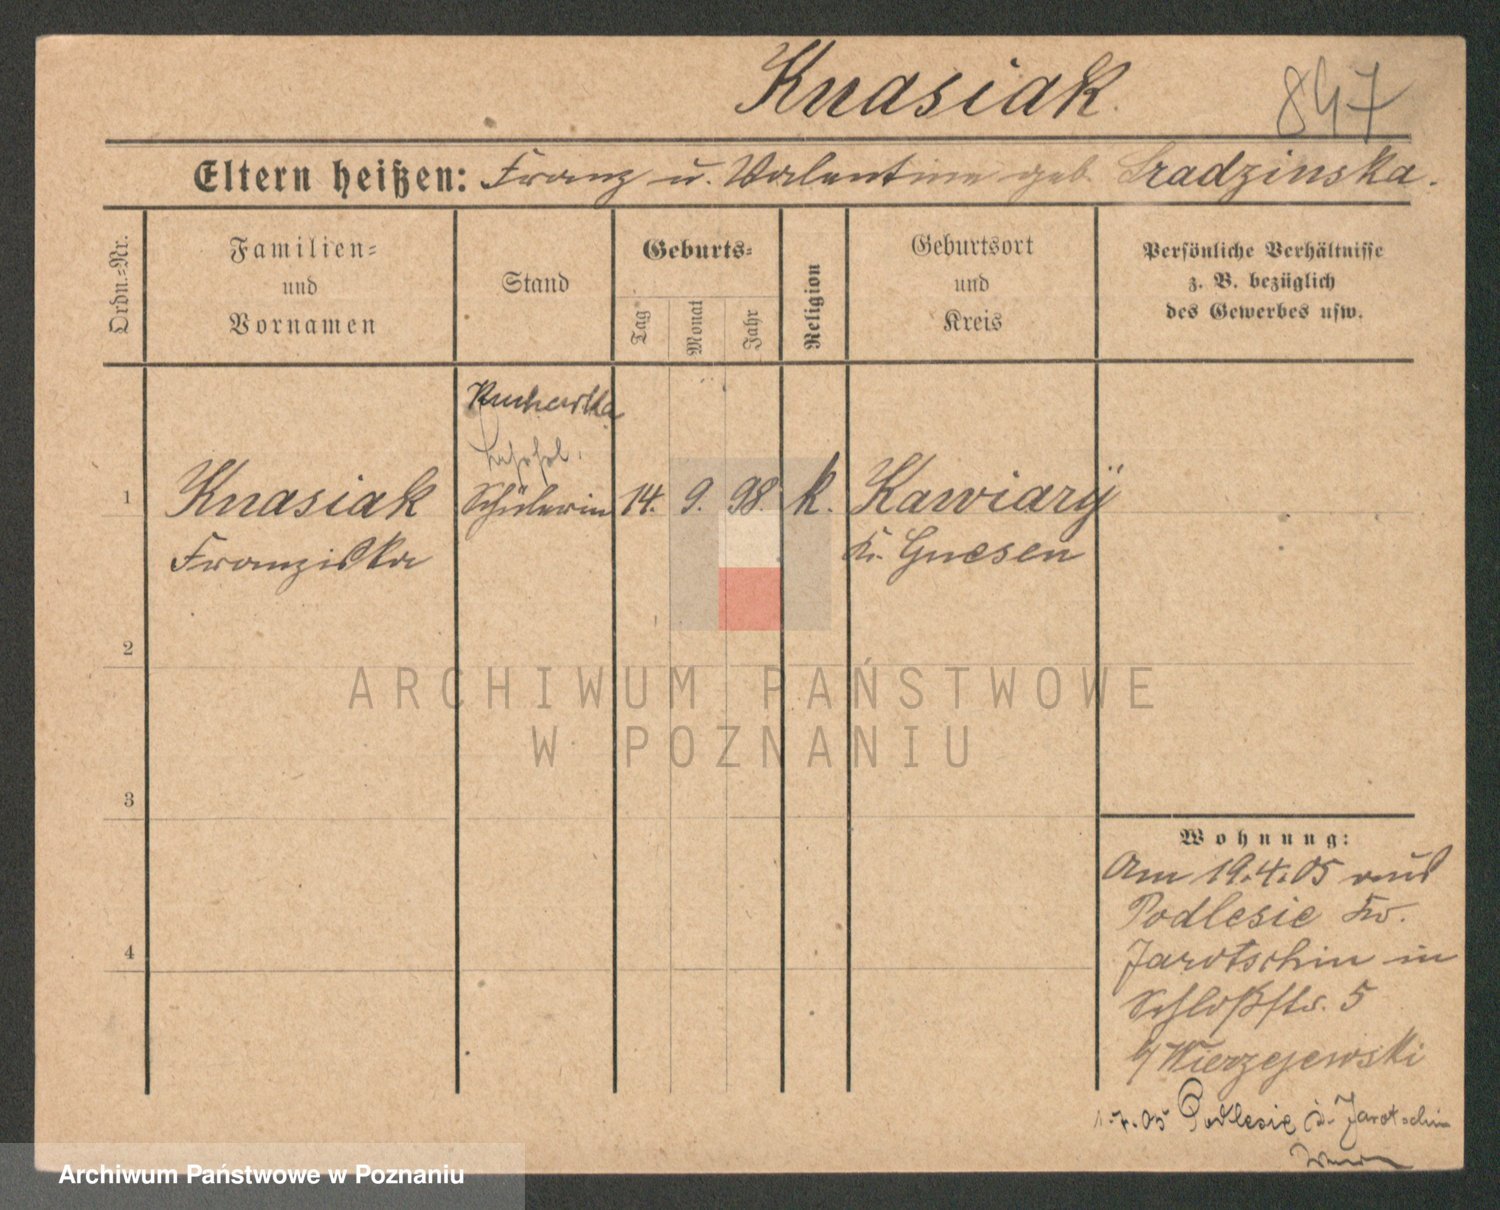 Knasiak.
847
Eltern heißen: Franz u. Valentine geb. Sradzinska.
Ordn.=Nr.
Familien=
und
Vornamen
Stand
Geburts=
Tag
Monat
Jahr
Religion
Geburtsort
und
Kreis
Persönliche Verhältnisse
z. B. bezüglich
des Gewerbes usw.
Kucharska
1 Knasiak Schülerin 14. 9. 98. k. Kawiarÿ
Franziska Kr. Gnesen
2
3
4
Wohnung:
Am 19.4.05 aus
Podlesie Kr.
Jarotschin in
Schloßstr. 5
b/ Wierzejewski
1.7.05 Podlesie b. Jarotschin
ARCHIWUM PAŃSTWOWE
W POZNANIU
Archiwum Państwowe w Poznaniu